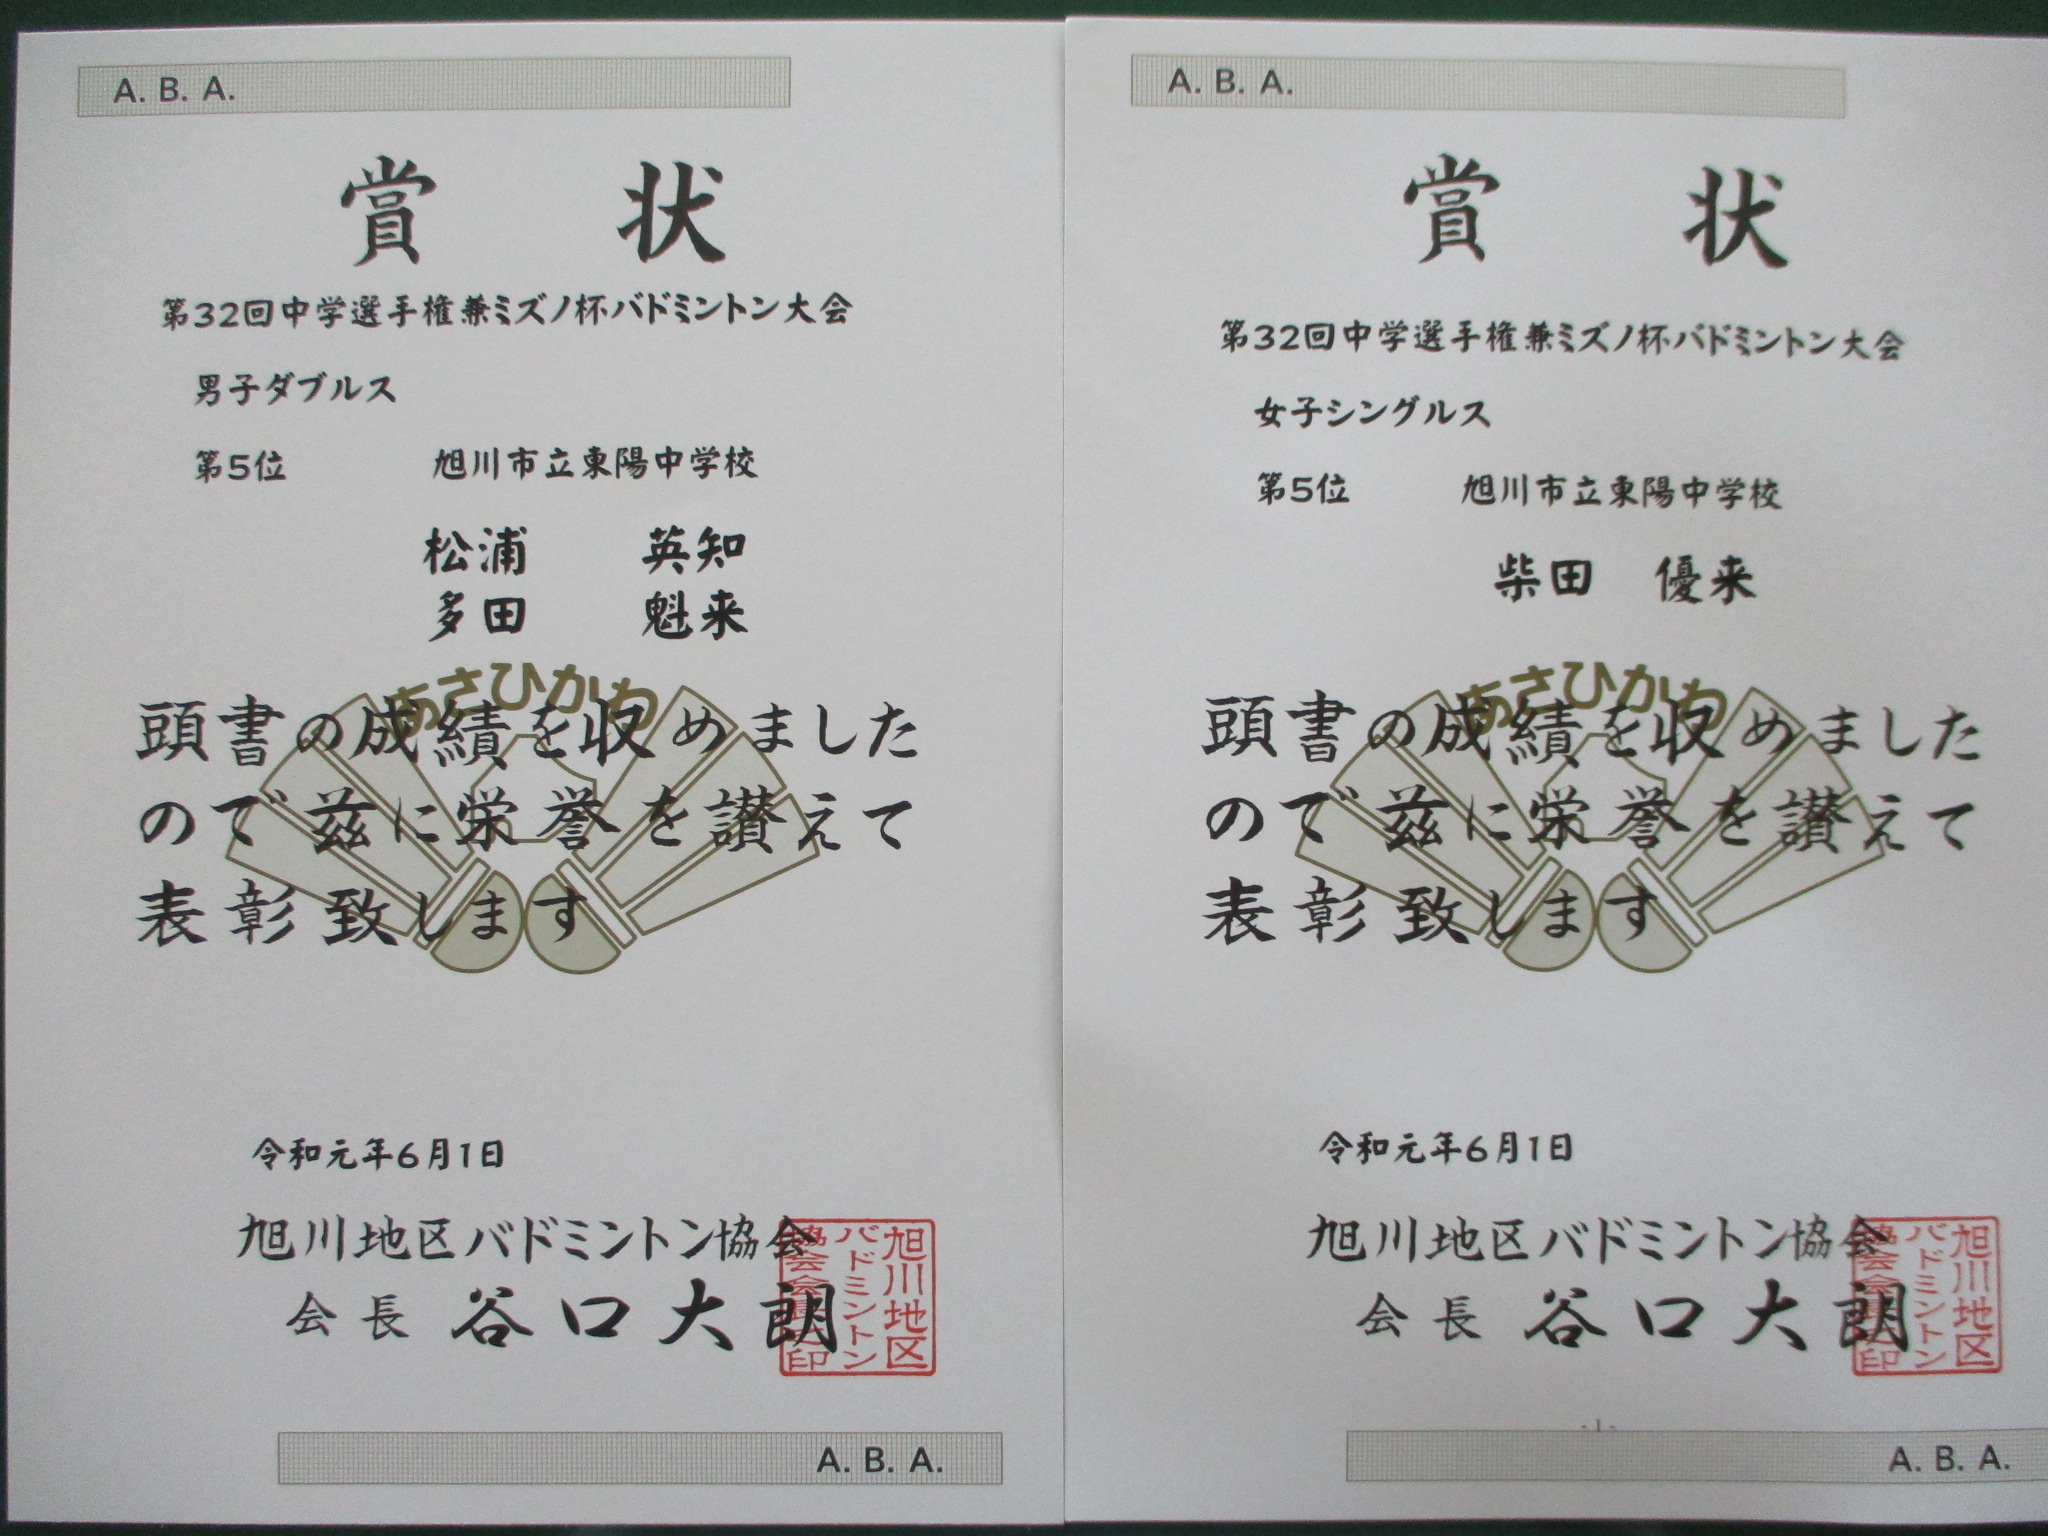 A. B. A.
賞 状
第32回中学選手権兼ミズノ杯バドミントン大会
男子ダブルス
第5位 旭川市立東陽中学校
松浦 英知
多田 魁来
あさひかわ
頭書の成績を収めました
ので茲に栄誉を讃えて
表彰致します
令和元年6月1日
旭川地区バドミントン協会
会長 谷口大朗
旭川地区
バドミントン
協会会長之印
A. B. A.
A. B. A.
賞 状
第32回中学選手権兼ミズノ杯バドミントン大会
女子シングルス
第5位 旭川市立東陽中学校
柴田 優来
あさひかわ
頭書の成績を収めました
ので茲に栄誉を讃えて
表彰致します
令和元年6月1日
旭川地区バドミントン協会
会長 谷口大朗
旭川地区
バドミントン
協会会長之印
A. B. A.